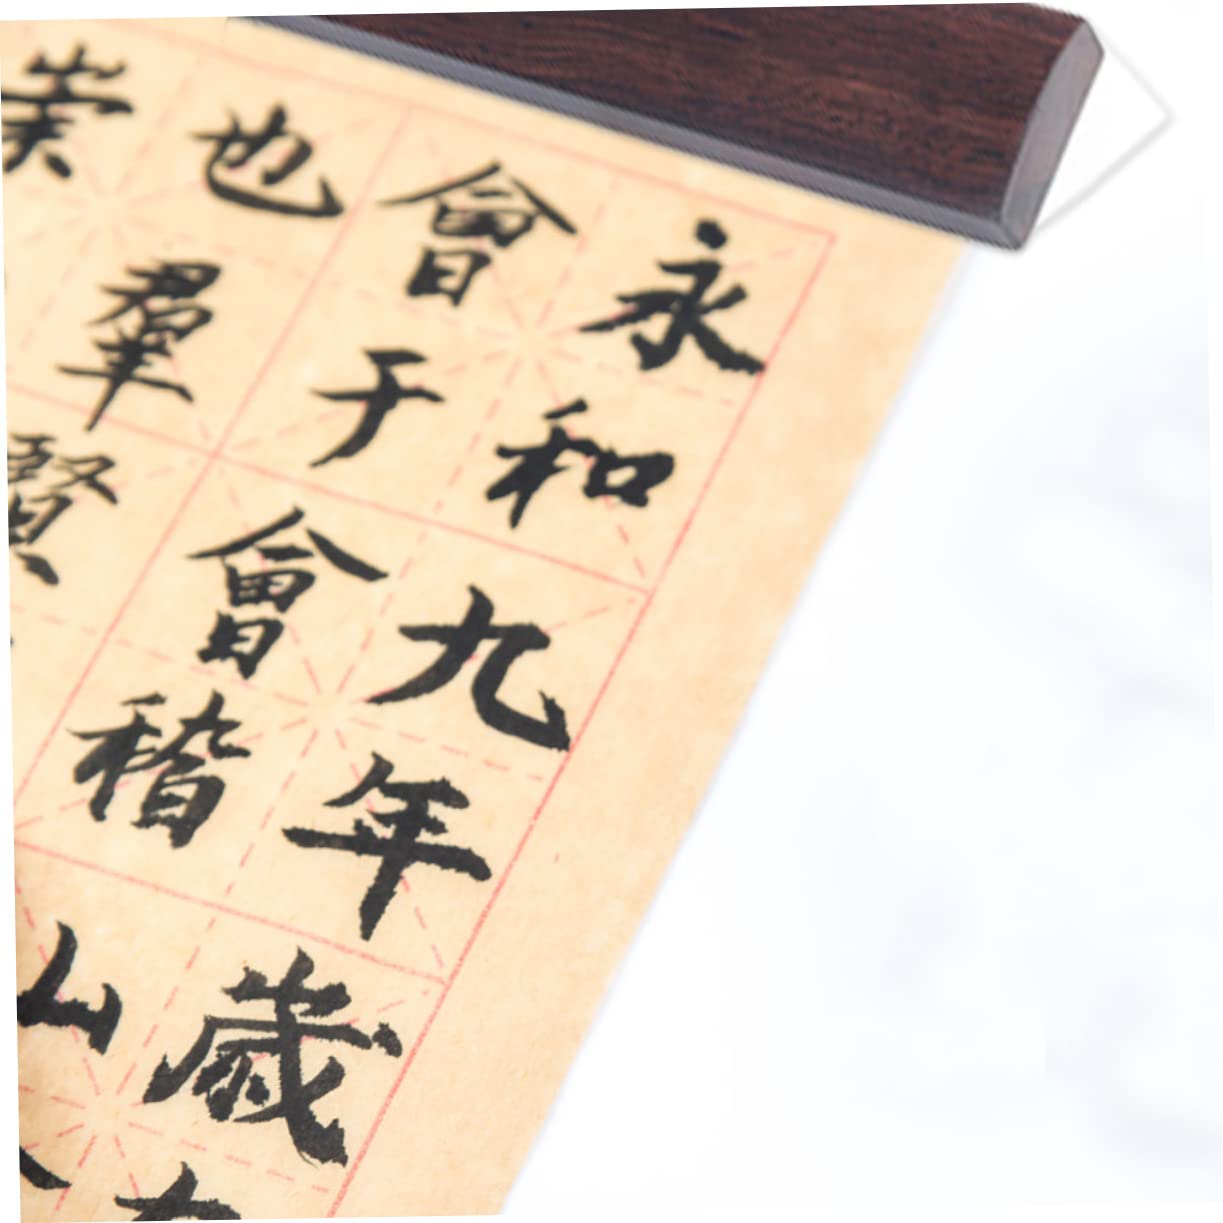 永和九年歲
會于會稽山
也羣賢
崇